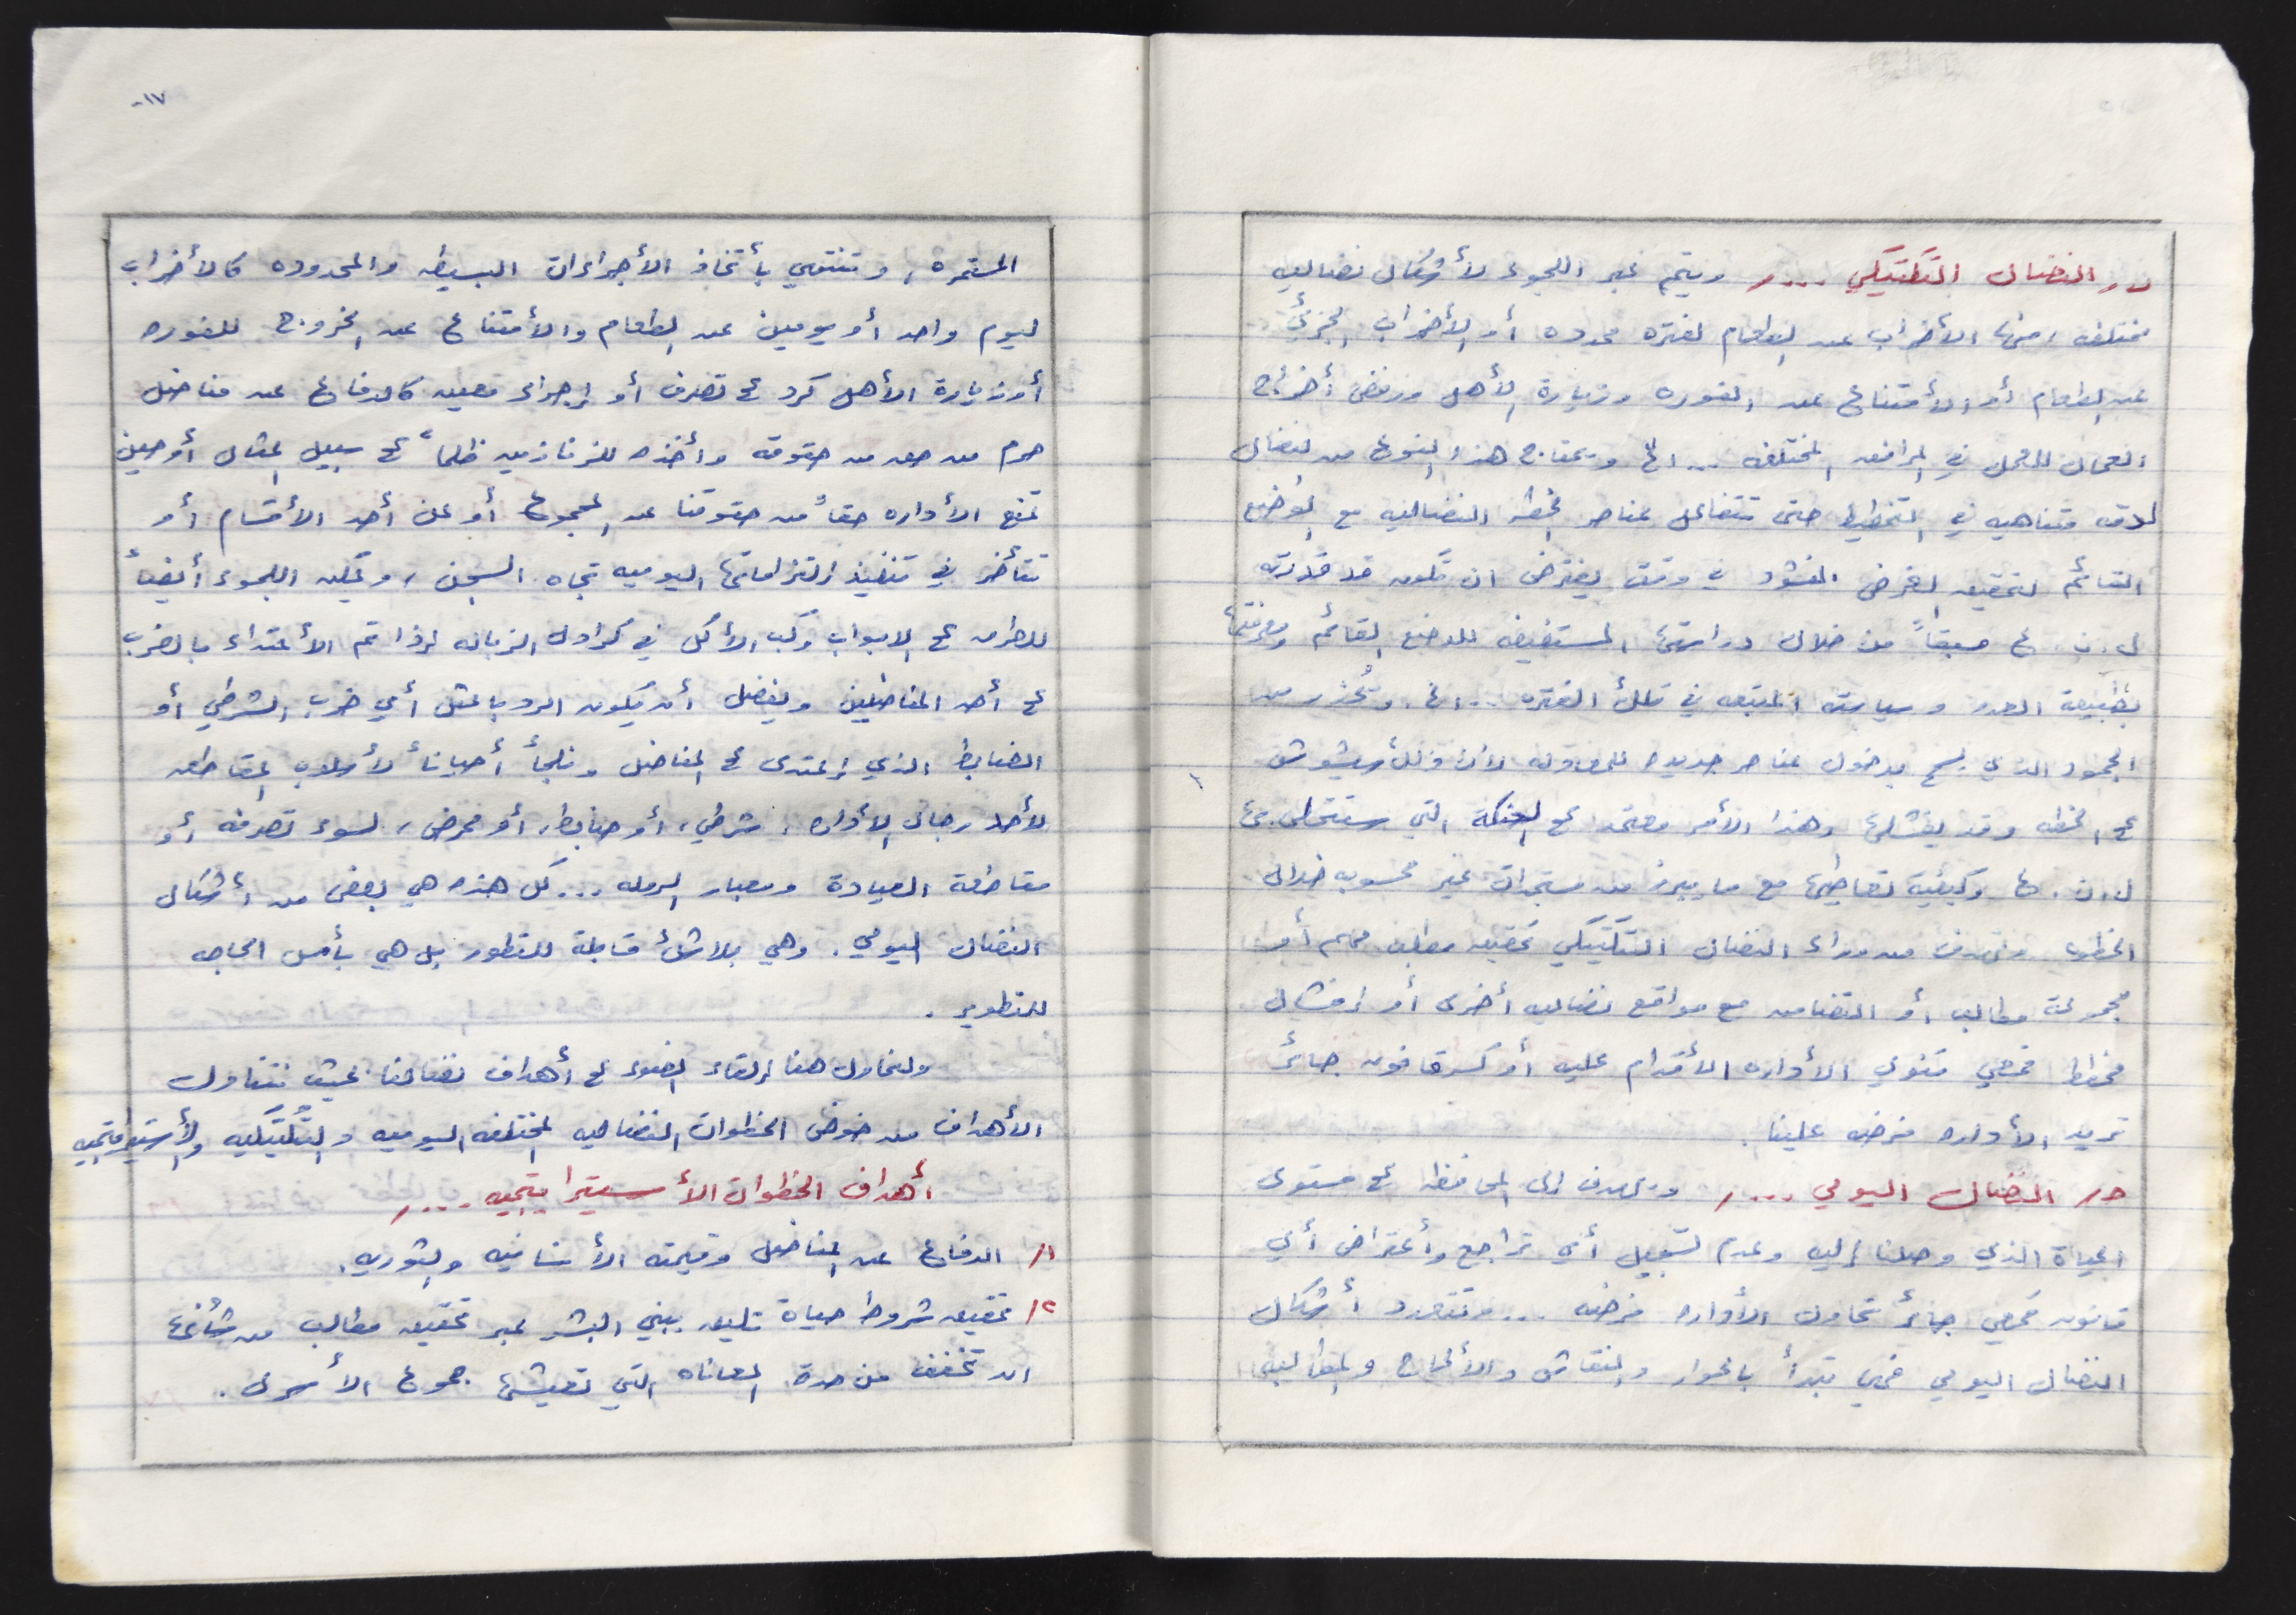 ب ر النضال التكتيكي .... ر ويتم عبر اللجوء لأشكال نضاليه
مختلفه ، منها الأضراب عن الطعام لفتره محدوده أو الأضراب الجزئي
عن الطعام أو الأمتناع عن الفوره وزيارة الأهل ورفض أخراج
العمال للعمل في المرافق المختلفه ... الخ ويحتاج هذا النوع من النضال
لدقه متناهيه في التخطيط حتى تتفاعل عناصر الخطه النضاليه مع الوضع
القائم لتحقيق الغرض المنشود في وقت يفترض ان تكون قد قدرته
ل . ن . ع مسبقاً من خلال دراستها المستفيضه للوضع القائم ومعرفتها
بطبيعة العدو وسياسته المتبعه في تلك الفتره ... الخ . ونحذر من
الجمود الذي يسمح بدخول عناصر جديده للمعادله لأن ذلك سيشوش
على الخطه وقد يفشلها وهذا الأمر معتمد على الحنكة التي ستتحلى بها
ل . ن . ع وكيفية تعاطيها مع ما يبرز من مستجدات غير محسوبه خلال
الخطوه ونهدف من وراء النضال التكتيكي تحقيق مطلب مهم أو
مجموعة مطالب أو التضامن مع مواقع نضاليه أخرى أو إفشال
مخطط قمعي تنوي الأداره الأقدام عليه أو كسر قانون جائر
تريد الأداره فرضه علينا .
ح ر النضال اليومي .... ر ويهدف إلى المحافظه على مستوى
الحياة الذي وصلنا إليه وعدم تسجيل أي تراجع وأعتراض أي
قانون قمعي جائر تحاول الأداره فرضه ... وتتعدد أشكال
النضال اليومي فهي تبدأ بالحوار والنقاش والألحاح والمطالبه
١٧-
المستمره ، وتنتهي بأتخاذ الأجراءات البسيطه والمحدوده كالأضراب
ليوم واحد أو يومين عن الطعام والأمتناع عن الخروج للفوره
أو زيارة الأهل كرد على تصرف أو إجراء معين كالدفاع عن مناضل
حرم من حق من حقوقه وأخذه للزنازين ظلماً على سبيل المثال أو حين
تمنع الأداره حقاً من حقوقنا عن المجموع أو عن أحد الأقسام أو
تتأخر في تنفيذ إلتزاماتها اليوميه تجاه السجن ، ويمكن اللجوء أيضاً
للطرق على الابواب وكب الأكل في كرادل الزباله إذا تم الأعتداء بالضرب
على أحد المناضلين ويفضل أن يكون الرد بالمثل أي ضرب الشرطي أو
الضابط الذي إعتدى على المناضل ونلجأ أحياناً لأسلوب المقاطعه
لأحد رجال الأداره ، شرطي ، أو ضابط ، أو ممرض ، لسوء تصرفه أو
مقاطعة العيادة ومعبار الرمله ... كل هذه هي بعض من أشكال
النضال اليومي . وهي بلا شك قابلة للتطور بل هي بأمس الحاجه
للتطوير .
ولنحاول هنا إلقاء الضوء على أهداف نضالنا بحيث نتناول
الأهداف من خوض الخطوات النضاليه المختلفه اليوميه والتكتيكيه والأستيراتجيه
أهداف الخطوات الأستيراتيجيه .... ر
١/ الدفاع عن المناضل وقيمته الأنسانيه والثوريه .
٢/ تحقيق شروط حياة تليق ببني البشر عبر تحقيق مطالب من شأنها
ان تخفف من حدة المعاناه التي تعيشها جموع الأسرى .